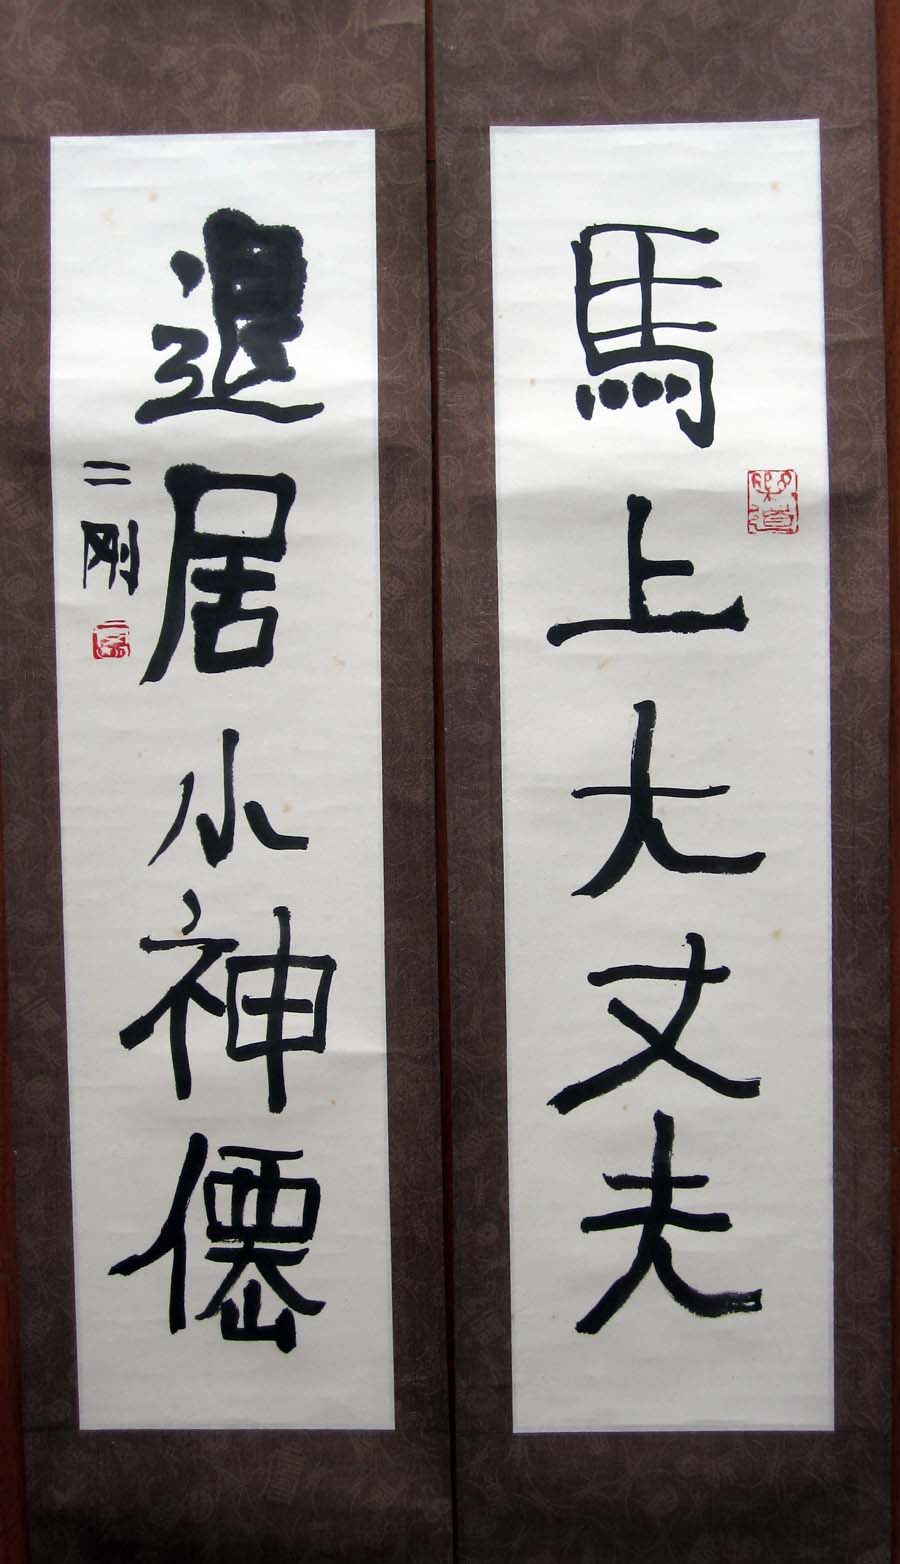 馬上大丈夫
退居小神僊
二刚